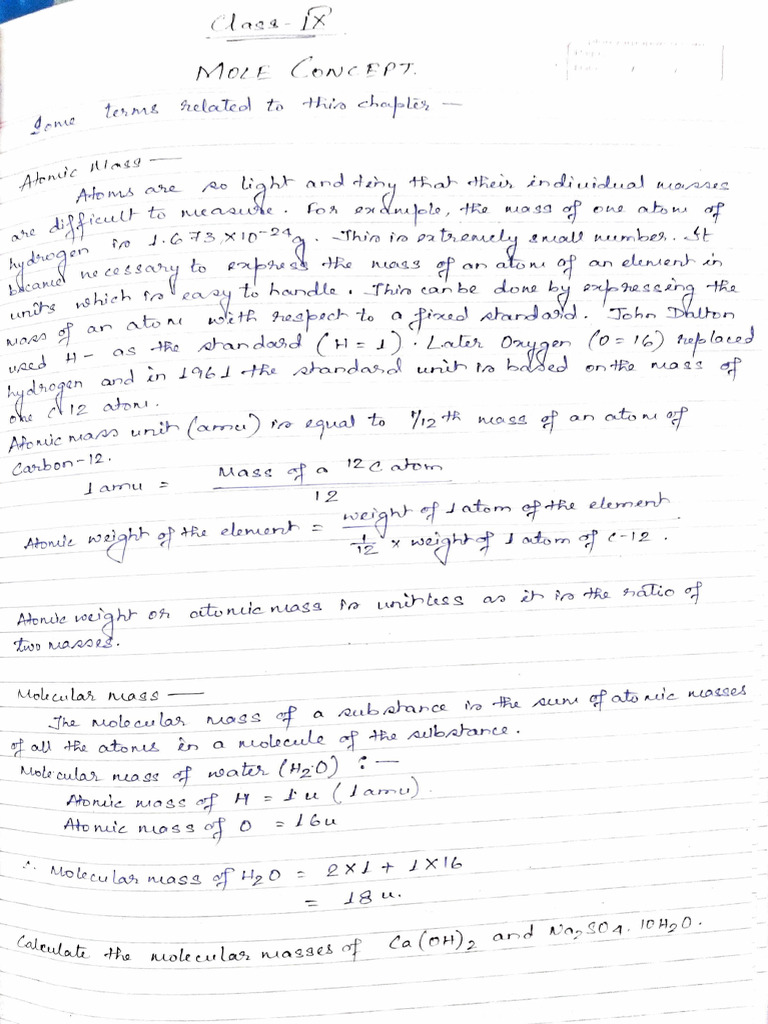 Class - IX
MOLE CONCEPT.
Some terms related to this chapter —
Atomic Mass —
Atoms are so light and tiny that their individual masses
are difficult to measure. For example, the mass of one atom of
hydrogen is 1.673 × 10⁻²⁴g. This is extremely small number. It
became necessary to express the mass of an atom of an element in
units which is easy to handle. This can be done by expressing the
mass of an atom with respect to a fixed standard. John Dalton
used H - as the standard (H = 1). Later Oxygen (O = 16) replaced
hydrogen and in 1961 the standard unit is based on the mass of
one C 12 atom.
Atomic mass unit (amu) is equal to 1/12 th mass of an atom of
Carbon-12.
1 amu = Mass of a ¹²C atom / 12
Atomic weight of the element = weight of 1 atom of the element / 1/12 × weight of 1 atom of C-12.
Atomic weight or atomic mass is unitless as it is the ratio of
two masses.
Molecular mass —
The molecular mass of a substance is the sum of atomic masses
of all the atoms in a molecule of the substance.
Molecular mass of water (H₂O) :—
Atomic mass of H = 1 u (1 amu)
Atomic mass of O = 16u
∴ Molecular mass of H₂O = 2 × 1 + 1 × 16
= 18 u.
Calculate the molecular masses of Ca(OH)₂ and Na₂SO₄.10H₂O.